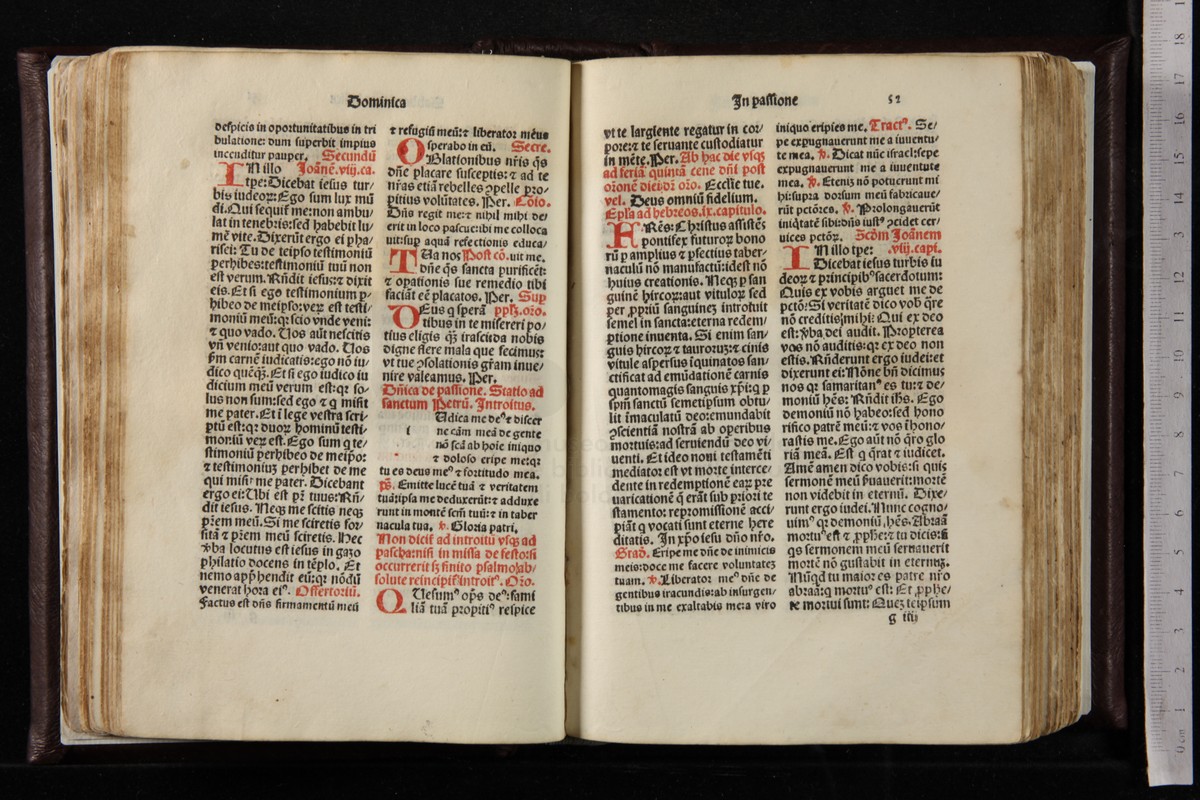 Dominica
despicis in oportunitatibus in tri
bulatione: dum superbit impius
incenditur pauper. Secundū
IN illo Joānē.viij.ca.
tpe: Dicebat iesus tur/
bis iudeoꝝ: Ego sum lux mū
di. Qui sequit᷑ me: non ambu/
lat in tenebris: sed habebit lu/
mē vite. Dixerūt ergo ei pha/
risei: Tu de teipso testimoniū
perhibes: testimoniū tuū non
est verum. Rn̄dit iesus: ⁊ dixit
eis. Et si ego testimonium p̱/
hibeo de meipso: veꝝ est testi/
moniū meū: qꝛ scio vnde veni:
⁊ quo vado. Uos aūt nescitis
vn̄ venio: aut quo vado. Uos
ẜm carnē iudicatis: ego nō iu/
dico quēqꝫ. Et si ego iudico iu
dicium meū verum est: qꝛ so/
lus non sum: sed ego ⁊ q̇ misit
me pater. Et ī lege vestra scri/
ptū est: qꝛ duoꝝ hominū testi/
moniū veꝝ est. Ego sum q̇ te/
stimoniū perhibeo de meip̄o:
⁊ testimoniuꝫ perhibet de me
qui misit me pater. Dicebant
ergo ei: Ubi est pr̄ tuus: Rn̄/
dit iesus. Neqꝫ me scitis neqꝫ
pr̄em meū. Si me sciretis for/
sitā ⁊ pr̄em meū sciretis. Hec
v̾ba locutus est iesus in gazo
philatio docens in tēplo. Et
nemo app̱hendit eū: qꝛ nōdū
venerat hora eiꝰ. Offertoriū.
Factus est dn̄s firmamentū meū
⁊ refugiū meū: ⁊ liberator meus
sperabo in eū. Secre.
OBlationibus nr̄is q̄s
dn̄e placare susceptis: ⁊ ad te
nr̄as etiā rebelles ꝯpelle pro/
pitius volūtates. Per. Cōio.
Dn̄s regit me: ⁊ nihil mihi de/
erit in loco pascue: ibi me colloca
uit: sup̱ aquā refectionis educa/
TUa nos Post cō. uit me.
dn̄e q̄s sancta purificēt:
⁊ opationis sue remedio tibi
faciāt eē placatos. Per. Sup
DEus q̇ sperā ppłꝫ.oro.
tibus in te misereri po/
tius eligis qꝫ irascida nobis
digne flere mala que fecimus:
vt tue ꝯsolationis gr̄am inue/
nire valeamus. Per.
Dn̄ica de passione. Statio ad
sanctum Petrū. Introitus.
i Udica me deꝰ ⁊ discer
ne cām meā de gente
nō scā ab hoīe iniquo
⁊ doloso eripe me: qꝛ
tu es deus meꝰ ⁊ fortitudo mea.
ps̄. Emitte lucē tuā ⁊ veritatem
tuā: ipsa me deduxerūt: ⁊ adduxe
runt in montē scm̄ tuū: ⁊ in taber
nacula tua. ꝟ. Gloria patri.
Non dicit᷑ ad introitū vsqꝫ ad
pascha: nisi in missa de festo: si
occurrerit sꝫ finito psalmo: ab/
solute reincipit᷑ introitꝰ. Oro.
QUesumꝰ op̄s deꝰ: fami
liā tuā propitiꝰ respice
In passione 52
vt te largiente regatur in cor/
pore: ⁊ te seruante custodiatur
in mēte. Per. Ab hac die vsqꝫ
ad feriā quintā cene dn̄i post
oronē diei: dr̄ oro. Eccl̄ie tue.
vel. Deus omniū fidelium.
Epl̄a ad hebreos.ix.capitulo.
FRēs: Christus assistēs
pontifex futuroꝝ bono
rū p̱ amplius ⁊ p̱fectius taber/
naculū nō manufactū: idest nō
huius creationis. Neqꝫ p̱ san
guinē hircoꝝ: aut vituloꝝ sed
per ꝓpriū sanguinez introiuit
semel in sancta: eterna redem/
ptione inuenta. Si enim san/
guis hircoꝝ ⁊ tauroruꝫ: ⁊ cinis
vitule aspersus īquinatos san/
ctificat ad emūdationē carnis
quantomagis sanguis xp̄i: q̇ p̱
spm̄ sanctū semetipsum obtu/
lit īmaculatū deo: emundabit
ꝯscientiā nostrā ab operibus
mortuis: ad seruiendū deo vi/
uenti. Et ideo noui testamēti
mediator est vt morte interce/
dente in redemptionē eaꝝ pre
uaricationū q̄ erāt sub priori te
stamento: repromissionē acci/
piāt q̇ vocati sunt eterne here
ditatis. In xp̄o iesu dn̄o nr̄o.
Grad̄. Eripe me dn̄e de inimicis
meis: doce me facere voluntateꝫ
tuam. ꝟ. Liberator meꝰ dn̄e de
gentibus iracundis: ab insurgen/
tibus in me exaltabis me: a viro
iniquo eripies me. Tractꝰ. Se/
pe expugnauerunt me a iuuentu/
te mea. ꝟ. Dicat nūc israel: sepe
expugnauerunt me a iuuentute
mea. ꝟ. Etenīꝫ nō potuerunt mi
hi: supra dorsum meū fabricaue/
rūt pctōres. ꝟ. Prolongauerūt
iniq̇tatē sibi: dn̄s iustꝰ ꝯcidet cer/
uices pctōꝝ. Scd̄m Joānem
IN illo tpe: .viij.capi.
Dicebat iesus turbis iu
deoꝝ ⁊ principibꝰ sacerdotum:
Quis ex vobis arguet me de
pctō: Si veritatē dico vob̄ q̄re
nō creditis mihi: Qui ex deo
est: v̾ba dei audit. Propterea
vos nō auditis: qꝛ ex deo non
estis. Rn̄derunt ergo iudei: et
dixerunt ei: Nōne bn̄ dicimus
nos qꝛ samaritanꝰ es tu: ⁊ de/
moniū hēs: Rn̄dit ih̄s. Ego
demoniū nō habeo: sed hono
rifico patrē meū: ⁊ vos īhono/
rastis me. Ego aūt nō q̄ro glo
riā meā. Est q̇ q̄rat ⁊ iudicet.
Amē amen dico vobis: si quis
sermonē meū ẜuauerit: mortē
non videbit in eternū. Dixe/
runt ergo iudei. Nunc cogno/
uimꝰ qꝛ demoniū hēs. Abraā
mortuꝰ est ⁊ ꝓphe: ⁊ tu dicis: si
qs sermonem meū seruauerit
mortē nō gustabit in eternuꝫ.
Nūqd tu maior es patre nr̄o
abraā: q̇ mortuꝰ est: Et ꝓphe/
te mortui sunt: Queꝫ teipsum
g iiij